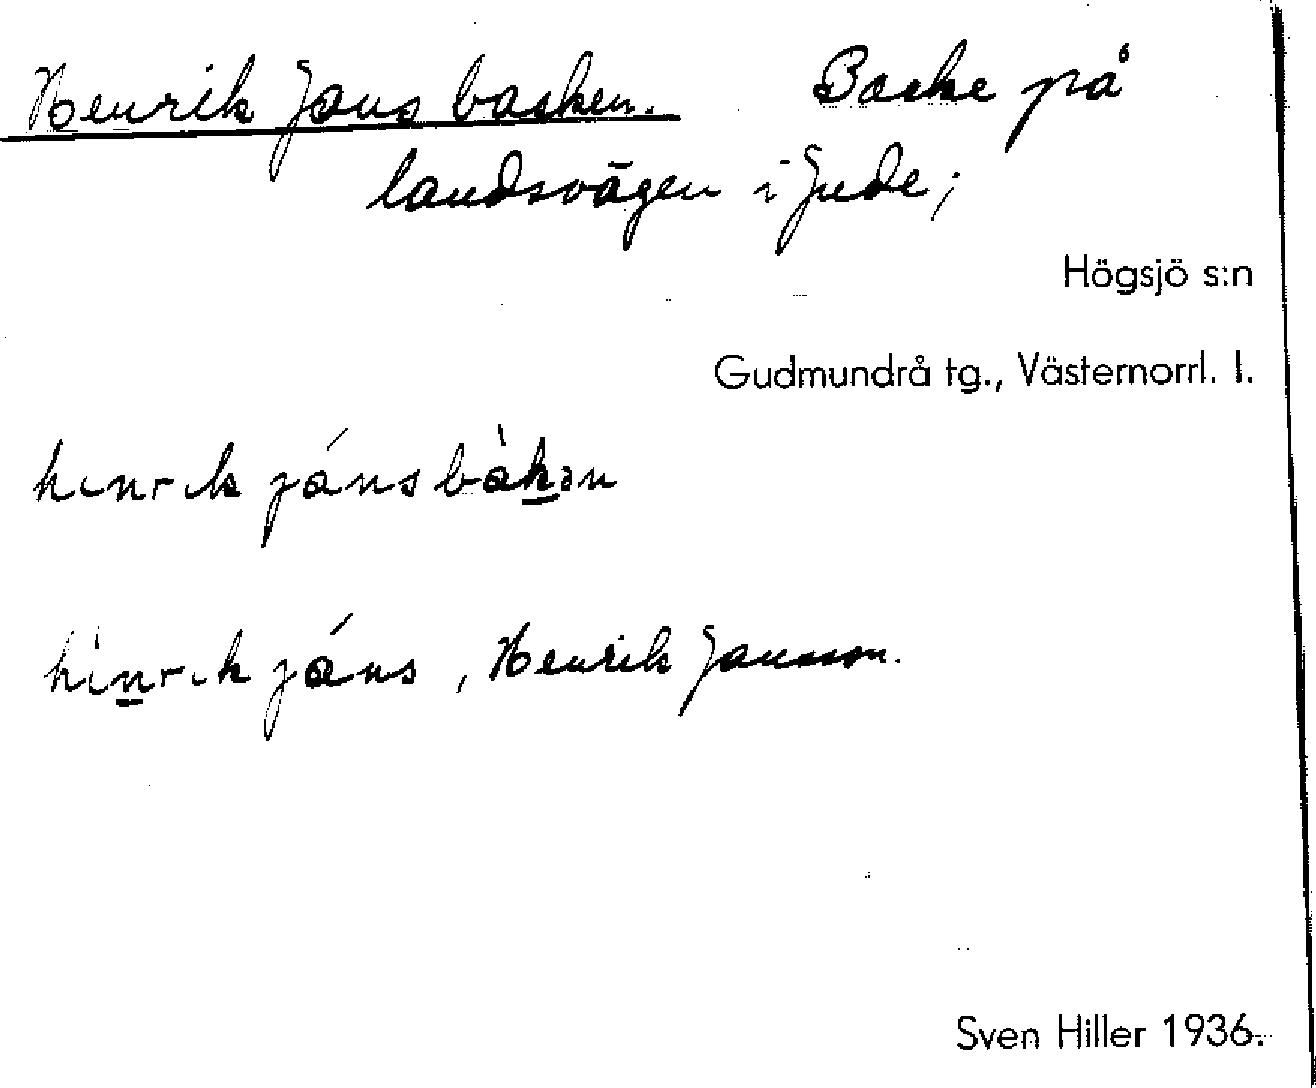 Henrik Jans backen. Backe på
landsvägen i Jude;
Högsjö s:n
Gudmundrå tg., Västernorrl. l.
hinrik jáns bàkən
hìnrik jáns, Henrik Jansson.
Sven Hiller 1936.